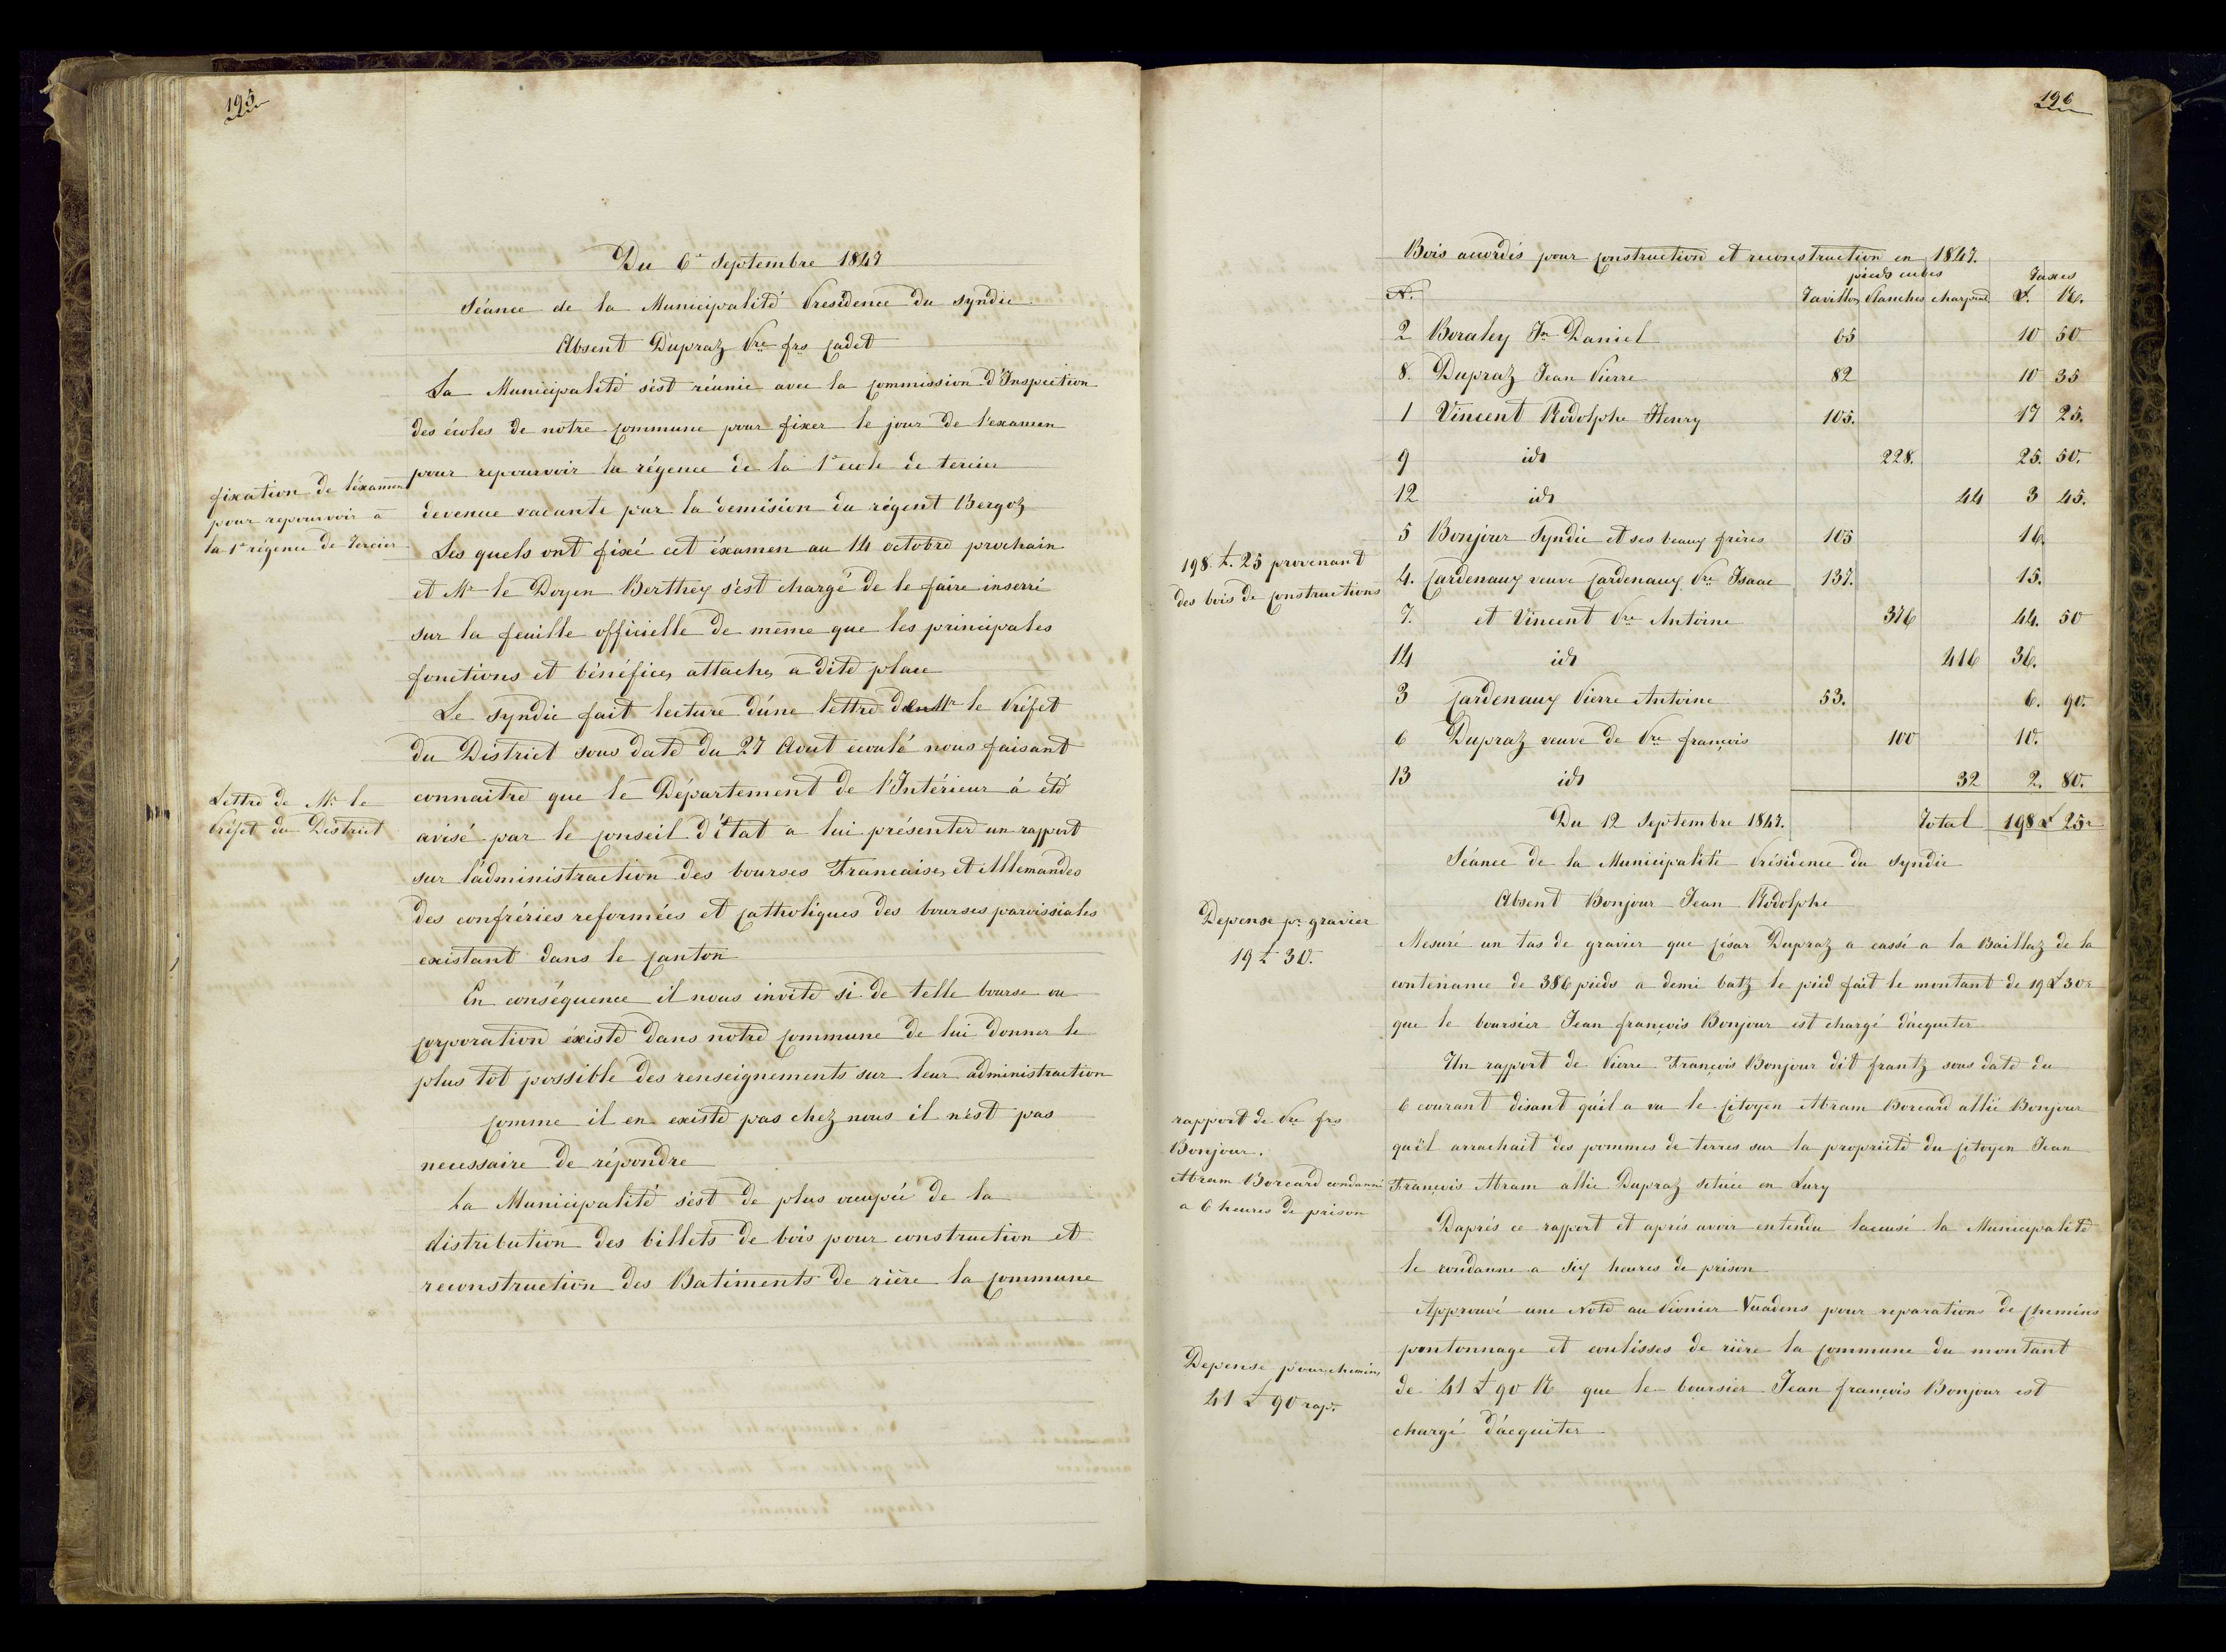 195
Du 6e Septembre 1847
Séance de la Municipalité Presidence du syndic
Absent Dupraz Pre frs cadet
La Municipalité s'est réunie avec la commission d'Inspection
des écoles de notre commune pour fixer le jour de l'examen
pour repourvoir la régence de la 1e ecole de tercier
devenue vacante par la demision du régent Bergoz
Les quels ont fixé cet éxamen au 14 octobre prochain
et Mr le Doyen Berthey s'est chargé de le faire inserré
sur la feuille officielle de même que les principales
fonctions et bénéfices attachés a dite place
fixation de l'éxamen
pour repourvoir à
la 1e régence de Tercier
Le syndic fait lecture d'une lettre de Mr le Préfet
du District sous date du 27 Aout ecoulé nous faisant
connaitre que le Département de l'Intérieur à été
avisé par le conseil d'état a lui présenter un rapport
sur l'administraction des bourses Francaises et Allemandes
des confréries reformées et catholiques des bourses paroissiales
existant dans le canton
Lettre de Mr le
Préfet du District
En conséquence il nous invite si de telle bourse ou
corporation éxiste dans notre commune de lui donner le
plus tôt possible des renseignements sur leur administraction
comme il en existe pas chez nous il n'est pas
necessaire de répondre
La Municipalité s'est de plus occupée de la
distribution des billets de bois pour construction et
reconstruction des Batiments de rière la commune
196
Bois accordés pour construction et reconstruction en 1847.
pieds cubes Taxes
N. Tavillons Planches charpent £. Rp.
2 Boraley Jn Daniel 65 10 50
8. Dupraz Jean Pierre 82 10 35
1 Vincent Rodolphe Henry 105. 17 25.
9 id 228. 25. 50.
12 id 44 3 45.
5 Bonjour Syndic et ses beaux frères 105 16
4. Cardenaux veuve Cardenaux Pre Isaac 137. 15.
7. et Vincent Pre Antoine 376 44. 50
14 id 416 36.
3 Cardenaux Pierre Antoine 53. 6. 90.
6 Dupraz veuve de Pre françois 100 10.
13 id 32 2. 80.
Total 198 £ 25r
198. £. 25 provenant
des bois de constructions
Du 12 Septembre 1847.
Séance de la Municipalité Présidence du syndic
Absent Bonjour Jean Rodolphe
Mesuré un tas de gravier que César Dupraz a cassé a la Baillaz de la
contenance de 386 pieds a demi batz le pied fait le montant de 19 £ 30r
que le boursier Jean françois Bonjour est chargé d'acquiter
Depense pr gravier
19 £ 30.
Un rapport de Pierre François Bonjour dit frantz sous date du
6 courant disant qu'il a vu le citoyen Abram Borcard allié Bonjour
qu'il arrachait des pommes de terres sur la propriété du citoyen Jean
François Abram allié Dupraz située en Lury
D'après ce rapport et aprés avoir entendu l'accusé la Municipalité
le condanne a six heures de prison
rapport de Pre frs
Bonjour.
Abram Borcard condanné
a 6 heures de prison
Approuvé une Note au Pionier Vuadens pour reparations de chemins
pontonnage et coulisses de rière la commune du montant
de 41 £ 90 R que le boursier Jean françois Bonjour est
chargé d'acquiter
Depense pour chemins
41 £ 90 rap.